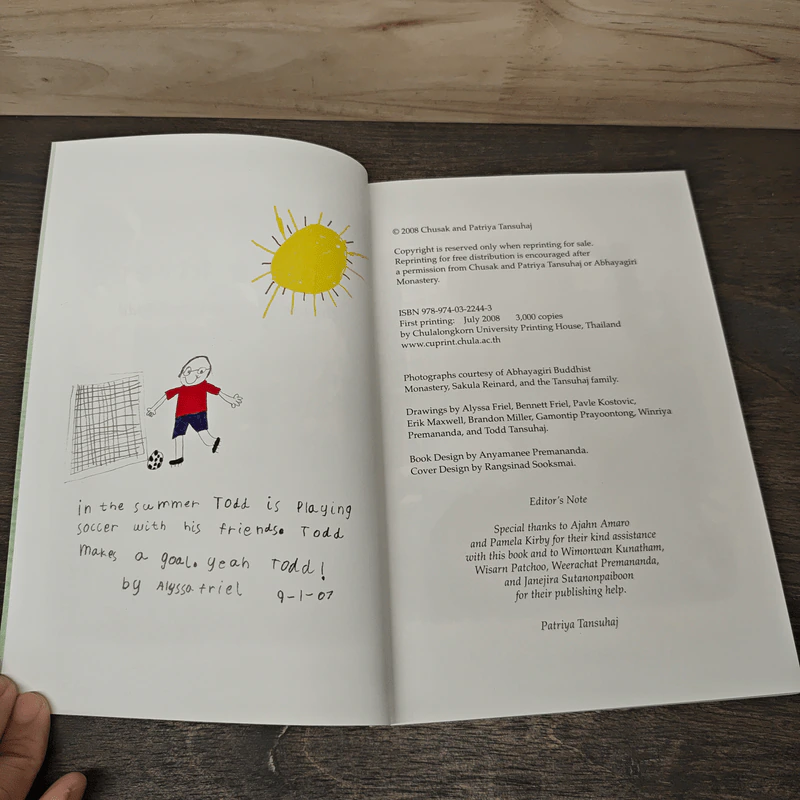 in the summer Todd is Playing
soccer with his friends. Todd
makes a goal. yeah Todd!
by Alyssa friel 9-1-07
© 2008 Chusak and Patriya Tansuhaj
Copyright is reserved only when reprinting for sale.
Reprinting for free distribution is encouraged after
a permission from Chusak and Patriya Tansuhaj or Abhayagiri
Monastery.
ISBN 978-974-03-2244-3
First printing: July 2008 3,000 copies
by Chulalongkorn University Printing House, Thailand
www.cuprint.chula.ac.th
Photographs courtesy of Abhayagiri Buddhist
Monastery, Sakula Reinard, and the Tansuhaj family.
Drawings by Alyssa Friel, Bennett Friel, Pavle Kostovic,
Erik Maxwell, Brandon Miller, Gamontip Prayoontong, Winriya
Premananda, and Todd Tansuhaj.
Book Design by Anyamanee Premananda.
Cover Design by Rangsinad Sooksmai.
Editor's Note
Special thanks to Ajahn Amaro
and Pamela Kirby for their kind assistance
with this book and to Wimonwan Kunatham,
Wisarn Patchoo, Weerachat Premananda,
and Janejira Sutanonpaiboon
for their publishing help.
Patriya Tansuhaj